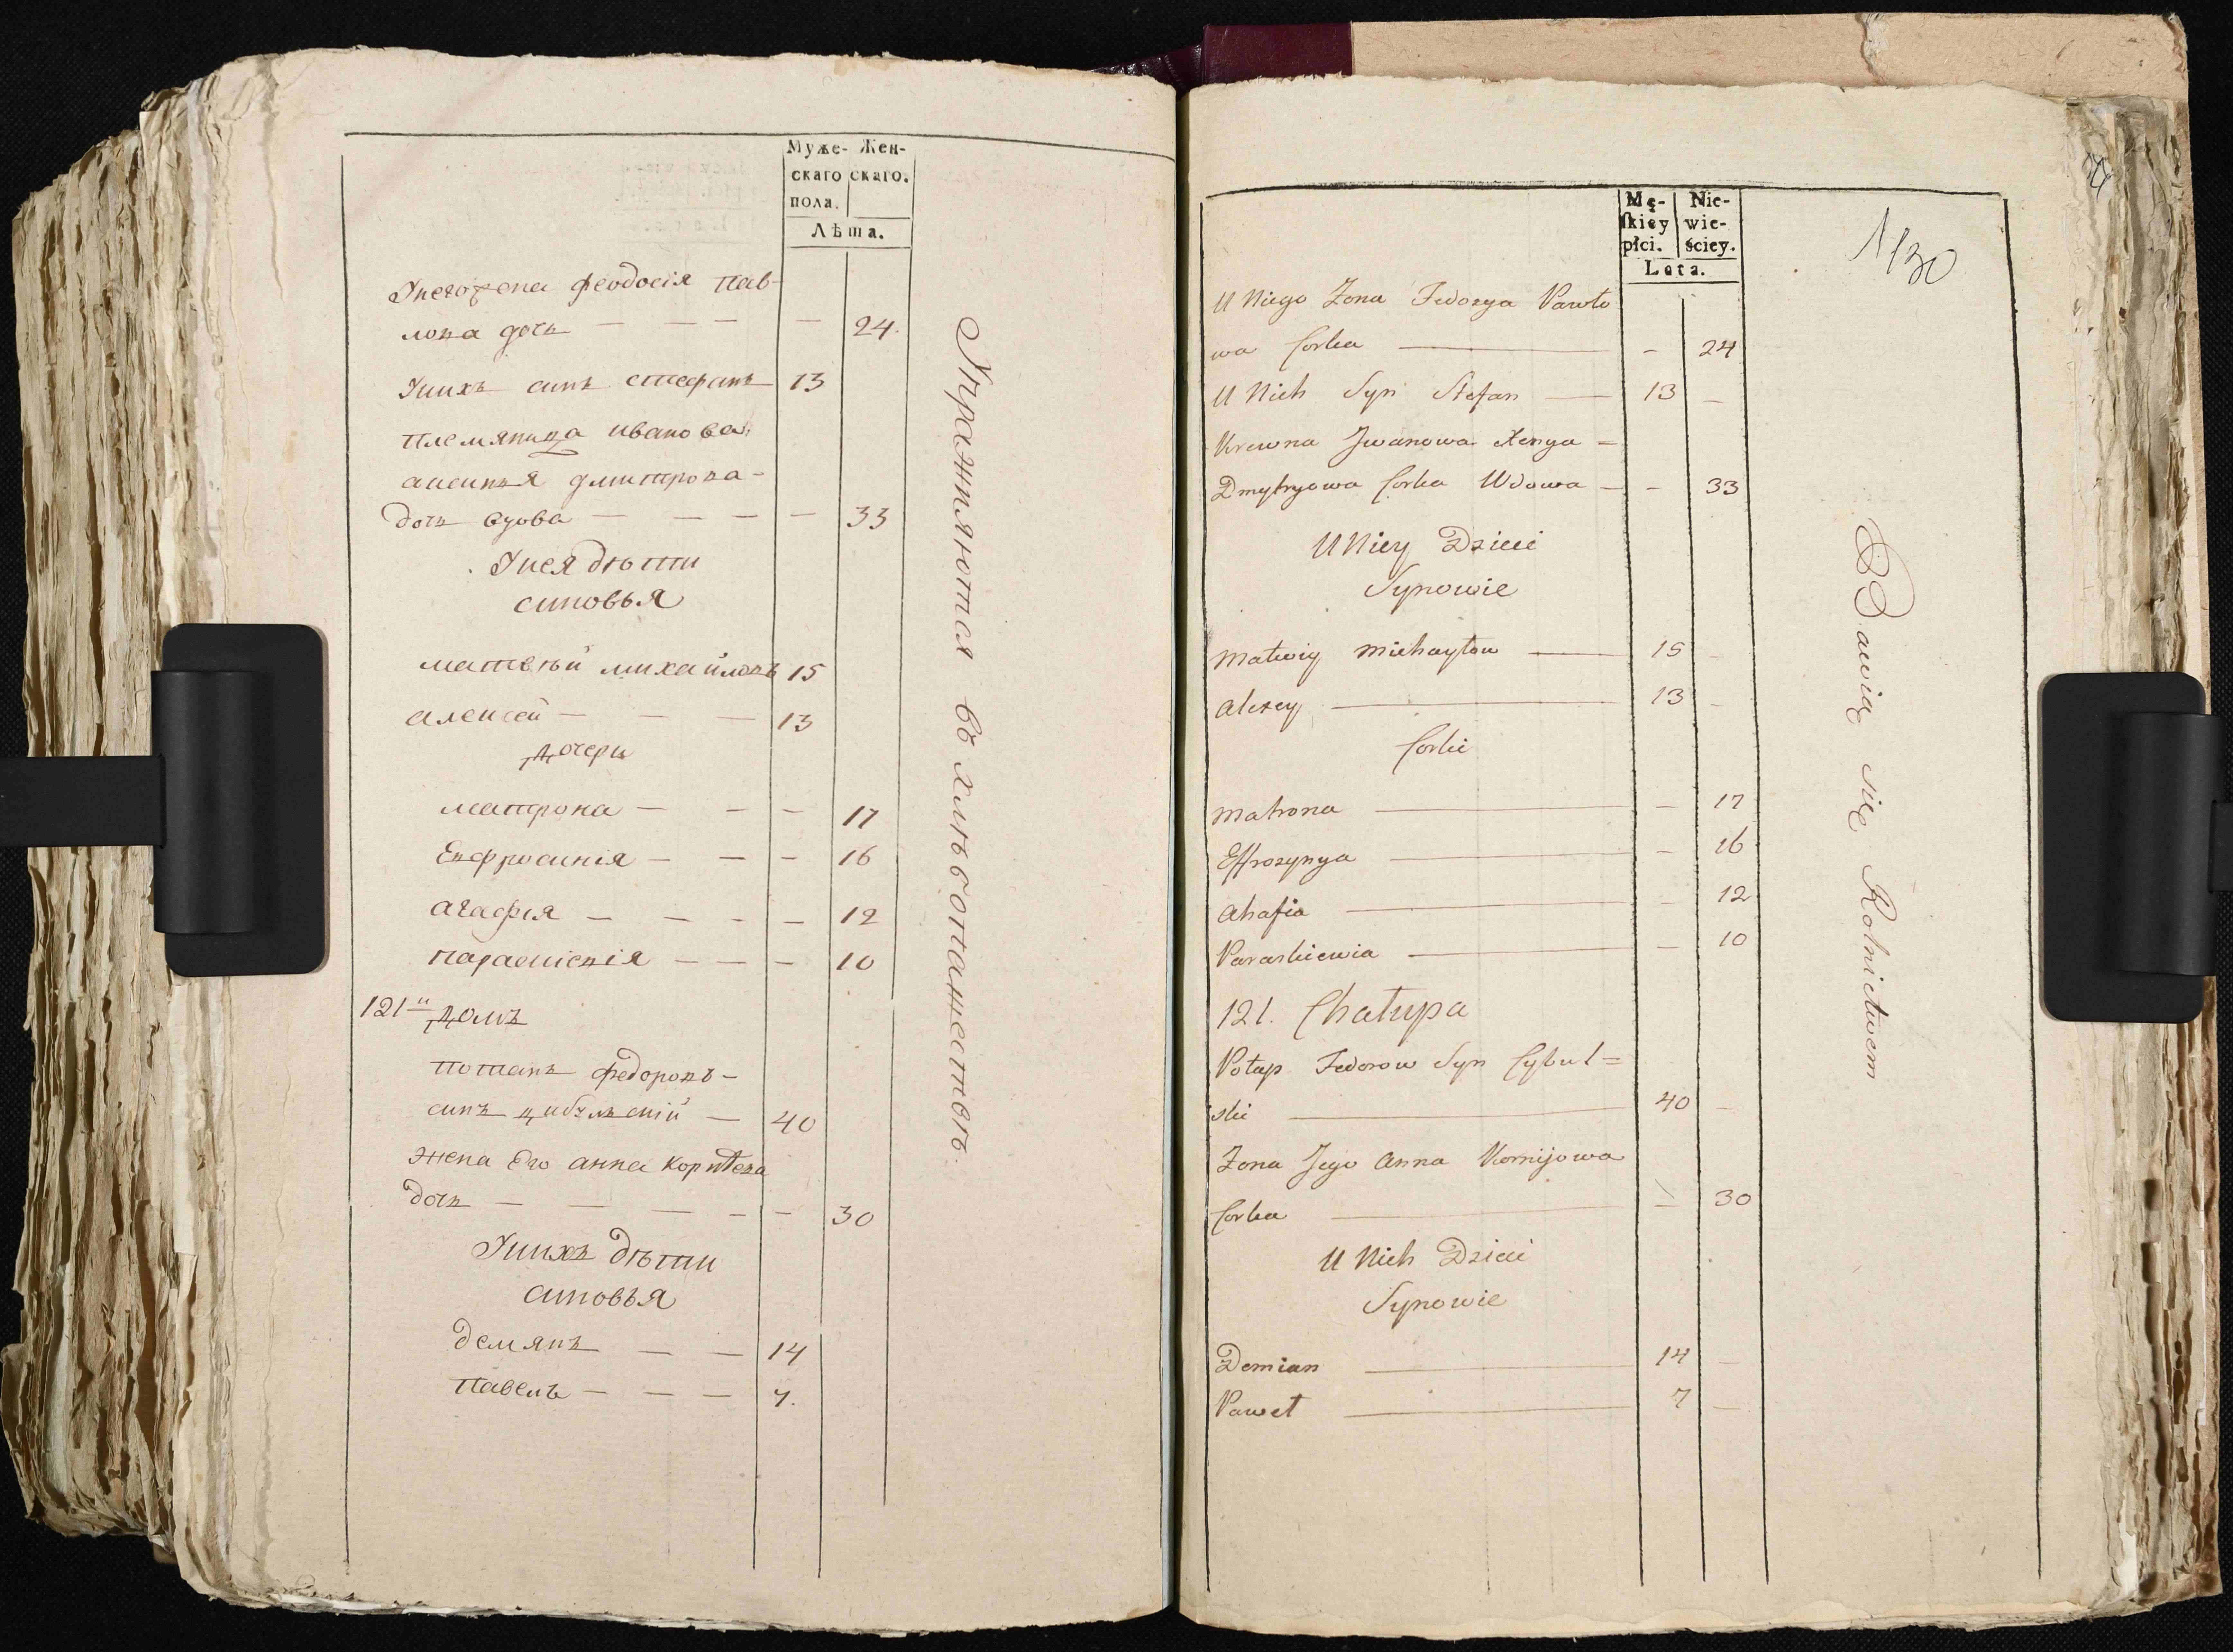 Муже- Жен-
скаго скаго.
пола.
Лѣта.
Унего жена феодосія пав-
лова дочь — — — — 24.
Унихъ синъ стефанъ 13
племяница иванова
аксинья дмитрова -
дочь вдова — — — — 33
Унея дѣти
синовья
матвѣй михайловъ 15
алексей — — — 13
дочери
матрона — — — 17
Евфросинія — — — 16
агафия — — — — 12
параскіевія — — — 10
121й домъ
потапъ федоровъ -
синъ цибульскій — 40
жена Его анна корнѣева
дочь — — — — — 30
Унихъ дѣти
синовья
демянъ — — 14
павелъ — — — 7.
Упражняются въ хлѣбопашествѣ.
Mę- Nie-
skiey wie-
płci. ściey.
Lata.
130
U Niego Zona Fedozya Pawło
wa Corka — - 24
U Nich Syn Stefan — 13 -
Krewna Jwanowa Xenya -
Dmytryowa Corka Wdowa - - 33
U Niey Dzieci
Synowie
Matwiy Michayłow — 15 -
Alexey — 13 -
Corki
Matrona — - 17
Effrozynya — - 16
Ahafia — - 12
Paraskiewia — - 10
121. Chałupa
Potap Fedorow Syn Cybul=
ski — 40 -
Zona Jego Anna Kornijowa
Corka — - 30
U Nich Dzieci
Synowie
Demian — 14
Paweł — 7 -
Bawią się Rolnictwem